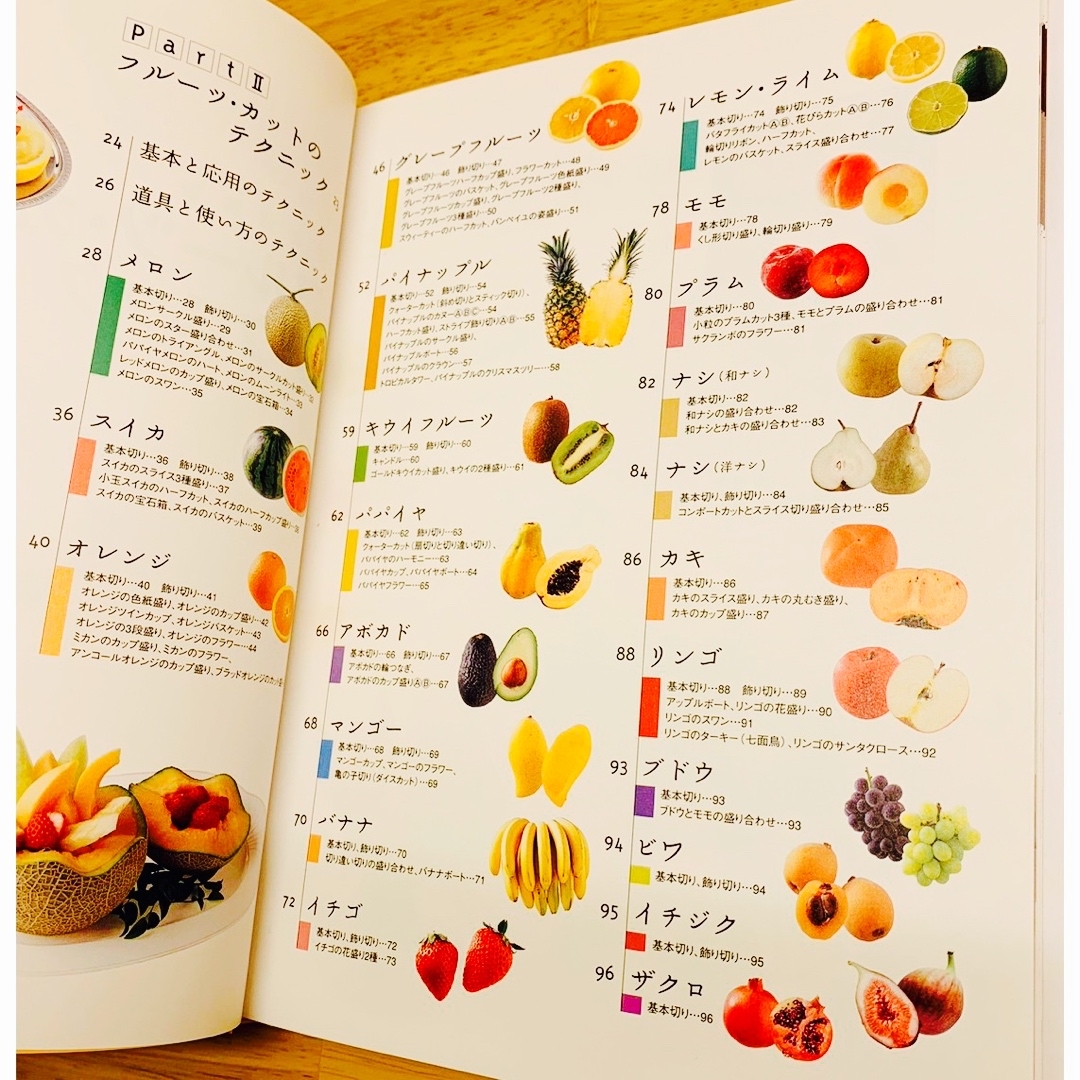 Part Ⅱ
フルーツ・カットの
テクニック
24 基本と応用のテクニック
26 道具と使い方のテクニック
28 メロン
基本切り…28 飾り切り…30
メロンサークル盛り…29
メロンのスター盛り合わせ…31
メロンのトライアングル、メロンのサークルカット盛り
パパイヤメロンのハート、メロンのムーンライト…33
レッドメロンのカップ盛り、メロンの宝石箱…34
メロンのスワン…35
36 スイカ
基本切り…36 飾り切り…38
スイカのスライス3種盛り…37
小玉スイカのハーフカット、スイカのハーフカップ盛り
スイカの宝石箱、スイカのバスケット…39
40 オレンジ
基本切り…40 飾り切り…41
オレンジの色紙盛り、オレンジのカップ盛り…42
オレンジツインカップ、オレンジバスケット…43
オレンジの3段盛り、オレンジのフラワー…44
ミカンのカップ盛り、ミカンのフラワー、
アンコールオレンジのカップ盛り、ブラッドオレンジのカット盛
46 グレープフルーツ
基本切り…46 飾り切り…47
グレープフルーツハーフカップ盛り、フラワーカット…48
グレープフルーツのバスケット、グレープフルーツ色紙盛り…49
グレープフルーツカップ盛り、グレープフルーツ2種盛り、
グレープフルーツ3種盛り…50
スウィーティーのハーフカット、バンペイユの姿盛り…51
52 パイナップル
基本切り…52 飾り切り…54
クォーターカット(斜め切りとスティック切り)、
パイナップルのカヌーⒶⒷⒸ…54
ハーフカット盛り、ストライプ飾り切りⒶⒷ…55
パイナップルのサークル盛り、
パイナップルボート…56
パイナップルのクラウン…57
トロピカルタワー、パイナップルのクリスマスツリー…58
59 キウイフルーツ
基本切り…59 飾り切り…60
キャンドル…60
ゴールドキウイカット盛り、キウイの2種盛り…61
62 パパイヤ
基本切り…62 飾り切り…63
クォーターカット(扇切りと切り違い切り)、
パパイヤのハーモニー…63
パパイヤカップ、パパイヤボート…64
パパイヤフラワー…65
66 アボカド
基本切り…66 飾り切り…67
アボカドの輪つなぎ、
アボカドのカップ盛りⒶⒷ…67
68 マンゴー
基本切り…68 飾り切り…69
マンゴーカップ、マンゴーのフラワー、
亀の子切り(ダイスカット)…69
70 バナナ
基本切り、飾り切り…70
切り違い切りの盛り合わせ、バナナボート…71
72 イチゴ
基本切り、飾り切り…72
イチゴの花盛り2種…73
74 レモン・ライム
基本切り…74 飾り切り…75
バタフライカットⒶⒷ、花びらカットⒶⒷ…76
輪切りリボン、ハーフカット、
レモンのバスケット、スライス盛り合わせ…77
78 モモ
基本切り…78
くし形切り盛り、輪切り盛り…79
80 プラム
基本切り…80
小粒のプラムカット3種、モモとプラムの盛り合わせ…81
サクランボのフラワー…81
82 ナシ(和ナシ)
基本切り…82
和ナシの盛り合わせ…82
和ナシとカキの盛り合わせ…83
84 ナシ(洋ナシ)
基本切り、飾り切り…84
コンポートカットとスライス切り盛り合わせ…85
86 カキ
基本切り…86
カキのスライス盛り、カキの丸むき盛り、
カキのカップ盛り…87
88 リンゴ
基本切り…88 飾り切り…89
アップルボート、リンゴの花盛り…90
リンゴのスワン…91
リンゴのターキー(七面鳥)、リンゴのサンタクロース…92
93 ブドウ
基本切り…93
ブドウとモモの盛り合わせ…93
94 ビワ
基本切り、飾り切り…94
95 イチジク
基本切り、飾り切り…95
96 ザクロ
基本切り…96